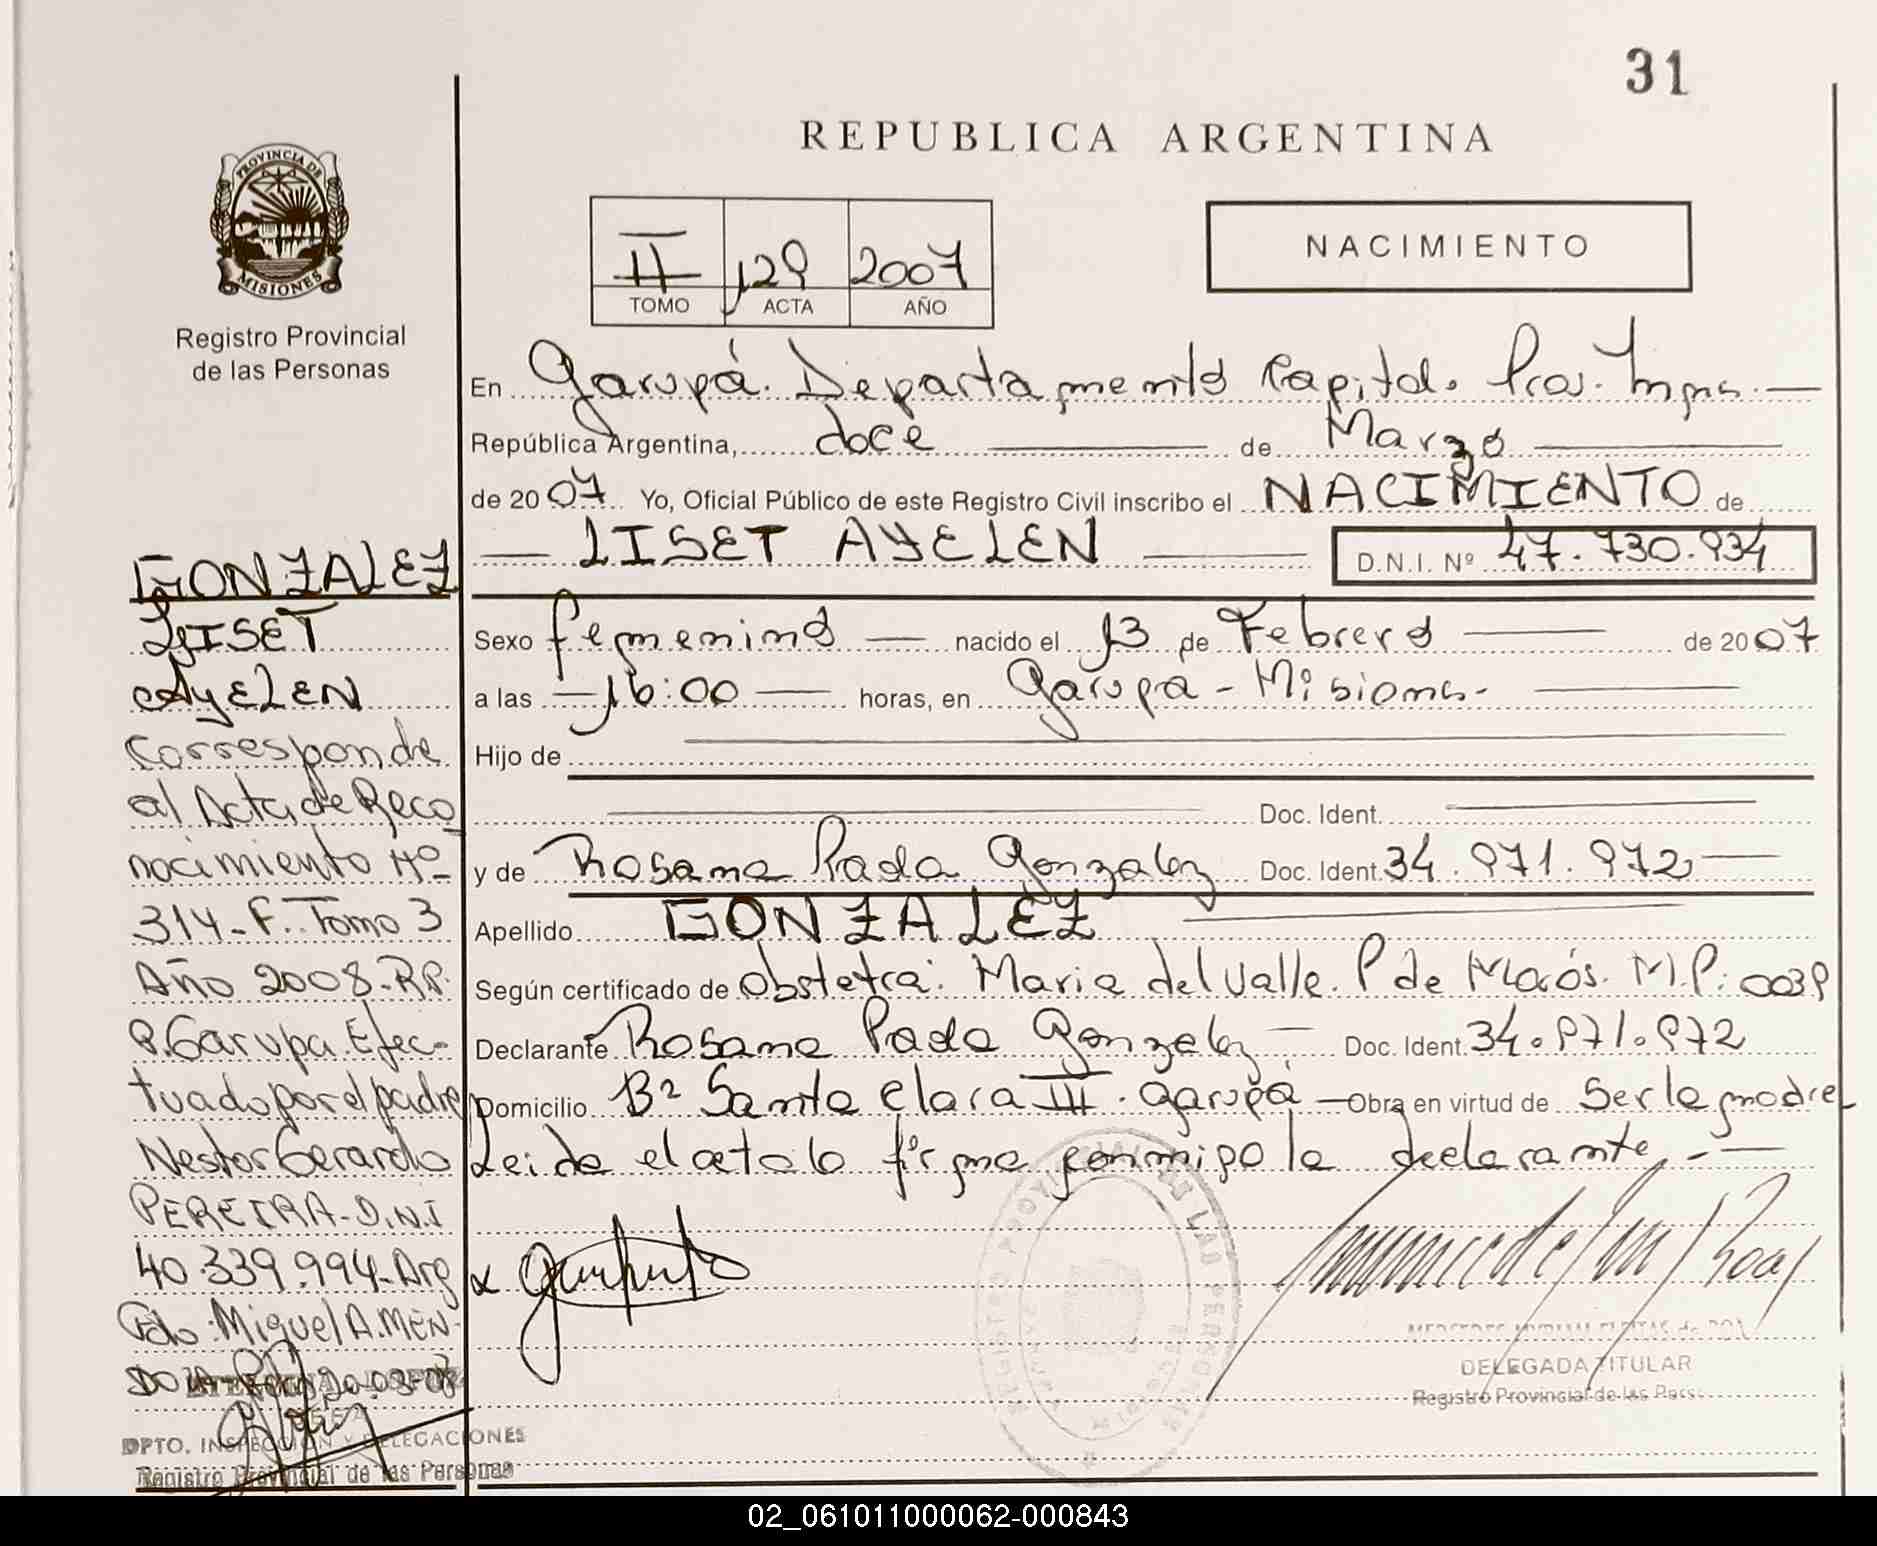 31
REPUBLICA ARGENTINA
PROVINCIA DE
MISIONES
Registro Provincial
de las Personas
II 129 2007
TOMO ACTA AÑO
NACIMIENTO
En Garupá. Departamento Capital. Prov. Mnes.
República Argentina, doce de Marzo
de 2007 Yo, Oficial Público de este Registro Civil inscribo el NACIMIENTO de
LISET AYELEN D.N.I. Nº 47.730.934
Sexo femenino nacido el 13 de Febrero de 2007
a las 16:00 horas, en Garupá - Misiones -
Hijo de
Doc. Ident.
y de Rosana Paola Gonzalez Doc. Ident. 34.971.972
Apellido GONZALEZ
Según certificado de Obstetra: Maria del Valle. P de Marós. M.P: 0039
Declarante Rosana Paola Gonzalez Doc. Ident. 34.971.972
Domicilio Bº Santa Clara III. Garupá Obra en virtud de Ser la madre
Leida el acta la firma conmigo la declarante.
DELEGADA TITULAR
Registro Provincial de las Pers
GONZALEZ
LISET
AYELEN
Corresponde
al Acta de Reco
nocimiento Nº
314-F. Tomo 3
Año 2008-R.P.
P. Garupa. Efec-
tuado por el padre
Nestor Gerardo
PEREIRA-D.N.I
40.339.994-Arg
Fdo: Miguel A. MEN-
DOZA 20-03-08
DPTO. INSPECCION Y DELEGACIONES
Registro Provincial de las Personas
02_061011000062-000843